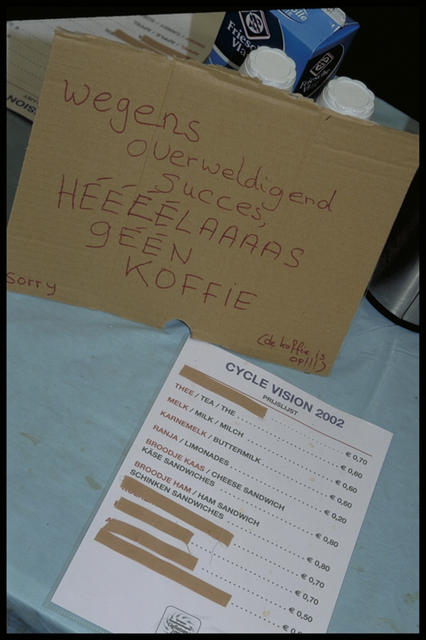 Friesche
Vla
wegens
overweldigend
succes,
HÉÉÉÉLAAAAS
GÉÉN
KOFFIE
sorry
(de koffie is
op!!!)
CYCLE VISION 2002
PRIJSLIJST
€ 0,70
THEE / TEA / THE € 0,60
MELK / MILK / MILCH € 0,60
KARNEMELK / BUTTERMILK € 0,60
RANJA / LIMONADES € 0,20
BROODJE KAAS / CHEESE SANDWICH
KÄSE SANDWICHES € 0,80
BROODJE HAM / HAM SANDWICH
SCHINKEN SANDWICHES € 0,80
€ 0,70
€ 0,70
€ 0,50